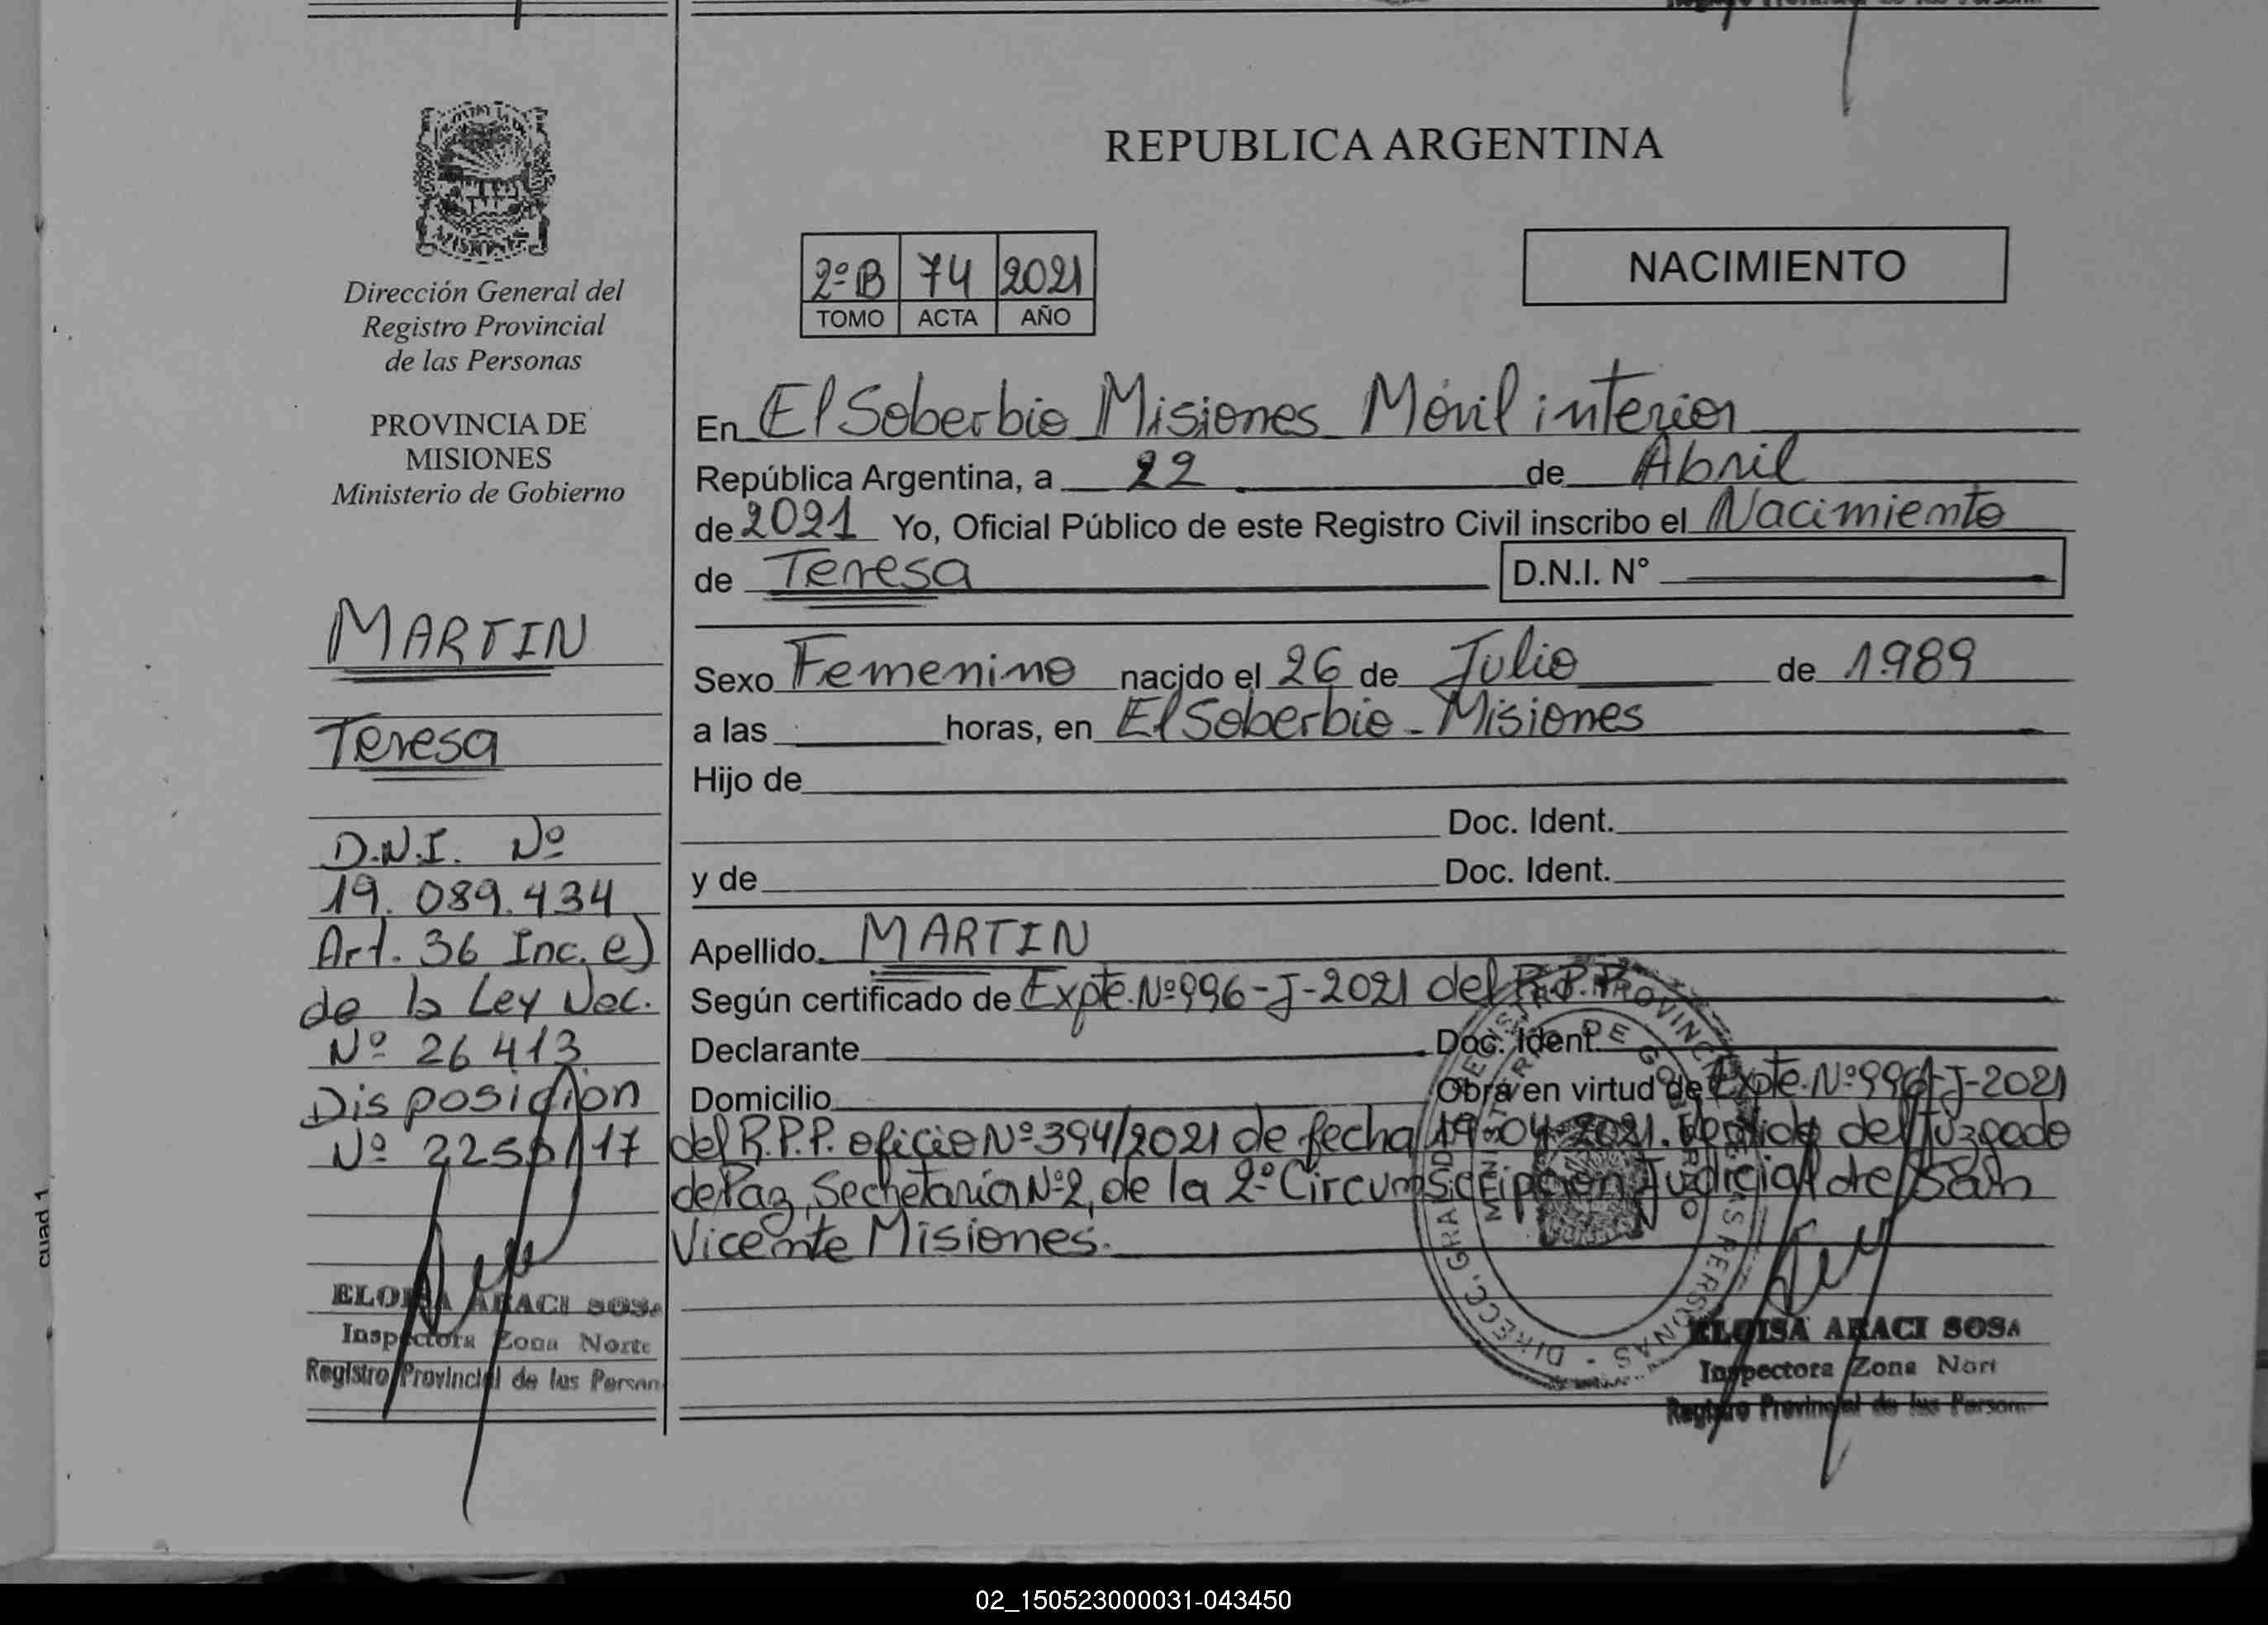 REPUBLICA ARGENTINA
Dirección General del
Registro Provincial
de las Personas
PROVINCIA DE
MISIONES
Ministerio de Gobierno
MARTIN
Teresa
D.N.I. Nº
19.089.434
Art. 36 Inc. e)
de la Ley Nac.
Nº 26413
Disposición
Nº 2250/17
ELOISA ARACI SOSA
Inspectora Zona Norte
Registro Provincial de las Person
2º B 74 2021
TOMO ACTA AÑO
NACIMIENTO
En El Soberbio Misiones Móvil interior
República Argentina, a 22 de Abril
de 2021 Yo, Oficial Público de este Registro Civil inscribo el Nacimiento
de Teresa D.N.I. N°
Sexo Femenino nacido el 26 de Julio de 1989
a las horas, en El Soberbio - Misiones
Hijo de
Doc. Ident.
y de Doc. Ident.
Apellido MARTIN
Según certificado de Expte. Nº 996-J-2021 del R.P.P.
Declarante Doc. Ident.
Domicilio Obra en virtud de Expte. Nº 996-J-2021
del R.P.P. oficio Nº 394/2021 de fecha 19-04-2021. del Juzgado
de Paz, Secretaria Nº 2, de la 2º Circunscripción Judicial de San
Vicente Misiones.
ELOISA ARACI SOSA
Inspectora Zona Nort
Registro Provincial de las Person
cuad 1
02_150523000031-043450